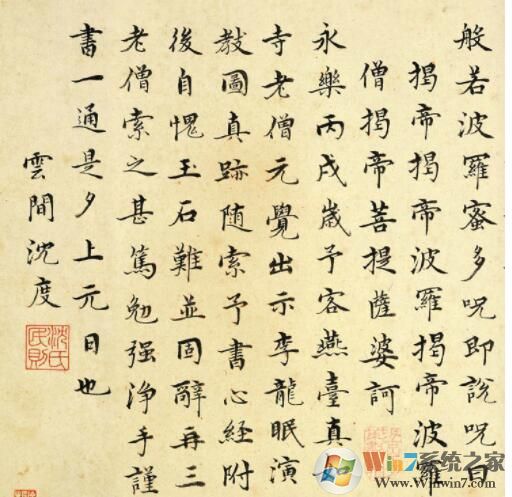 般若波羅蜜多呪即說呪曰
揭帝揭帝波羅揭帝波羅
僧揭帝菩提薩婆訶
永樂丙戌歲予客燕臺真
寺老僧元覺出示李龍眠演
教圖真跡随索予書心經附
後自愧玉石難並固辭再三
老僧索之甚篤勉强淨手謹
書一通是夕上元日也
雲間沈度
沈氏民則
Win7系统之家
Www.Winwin7.com